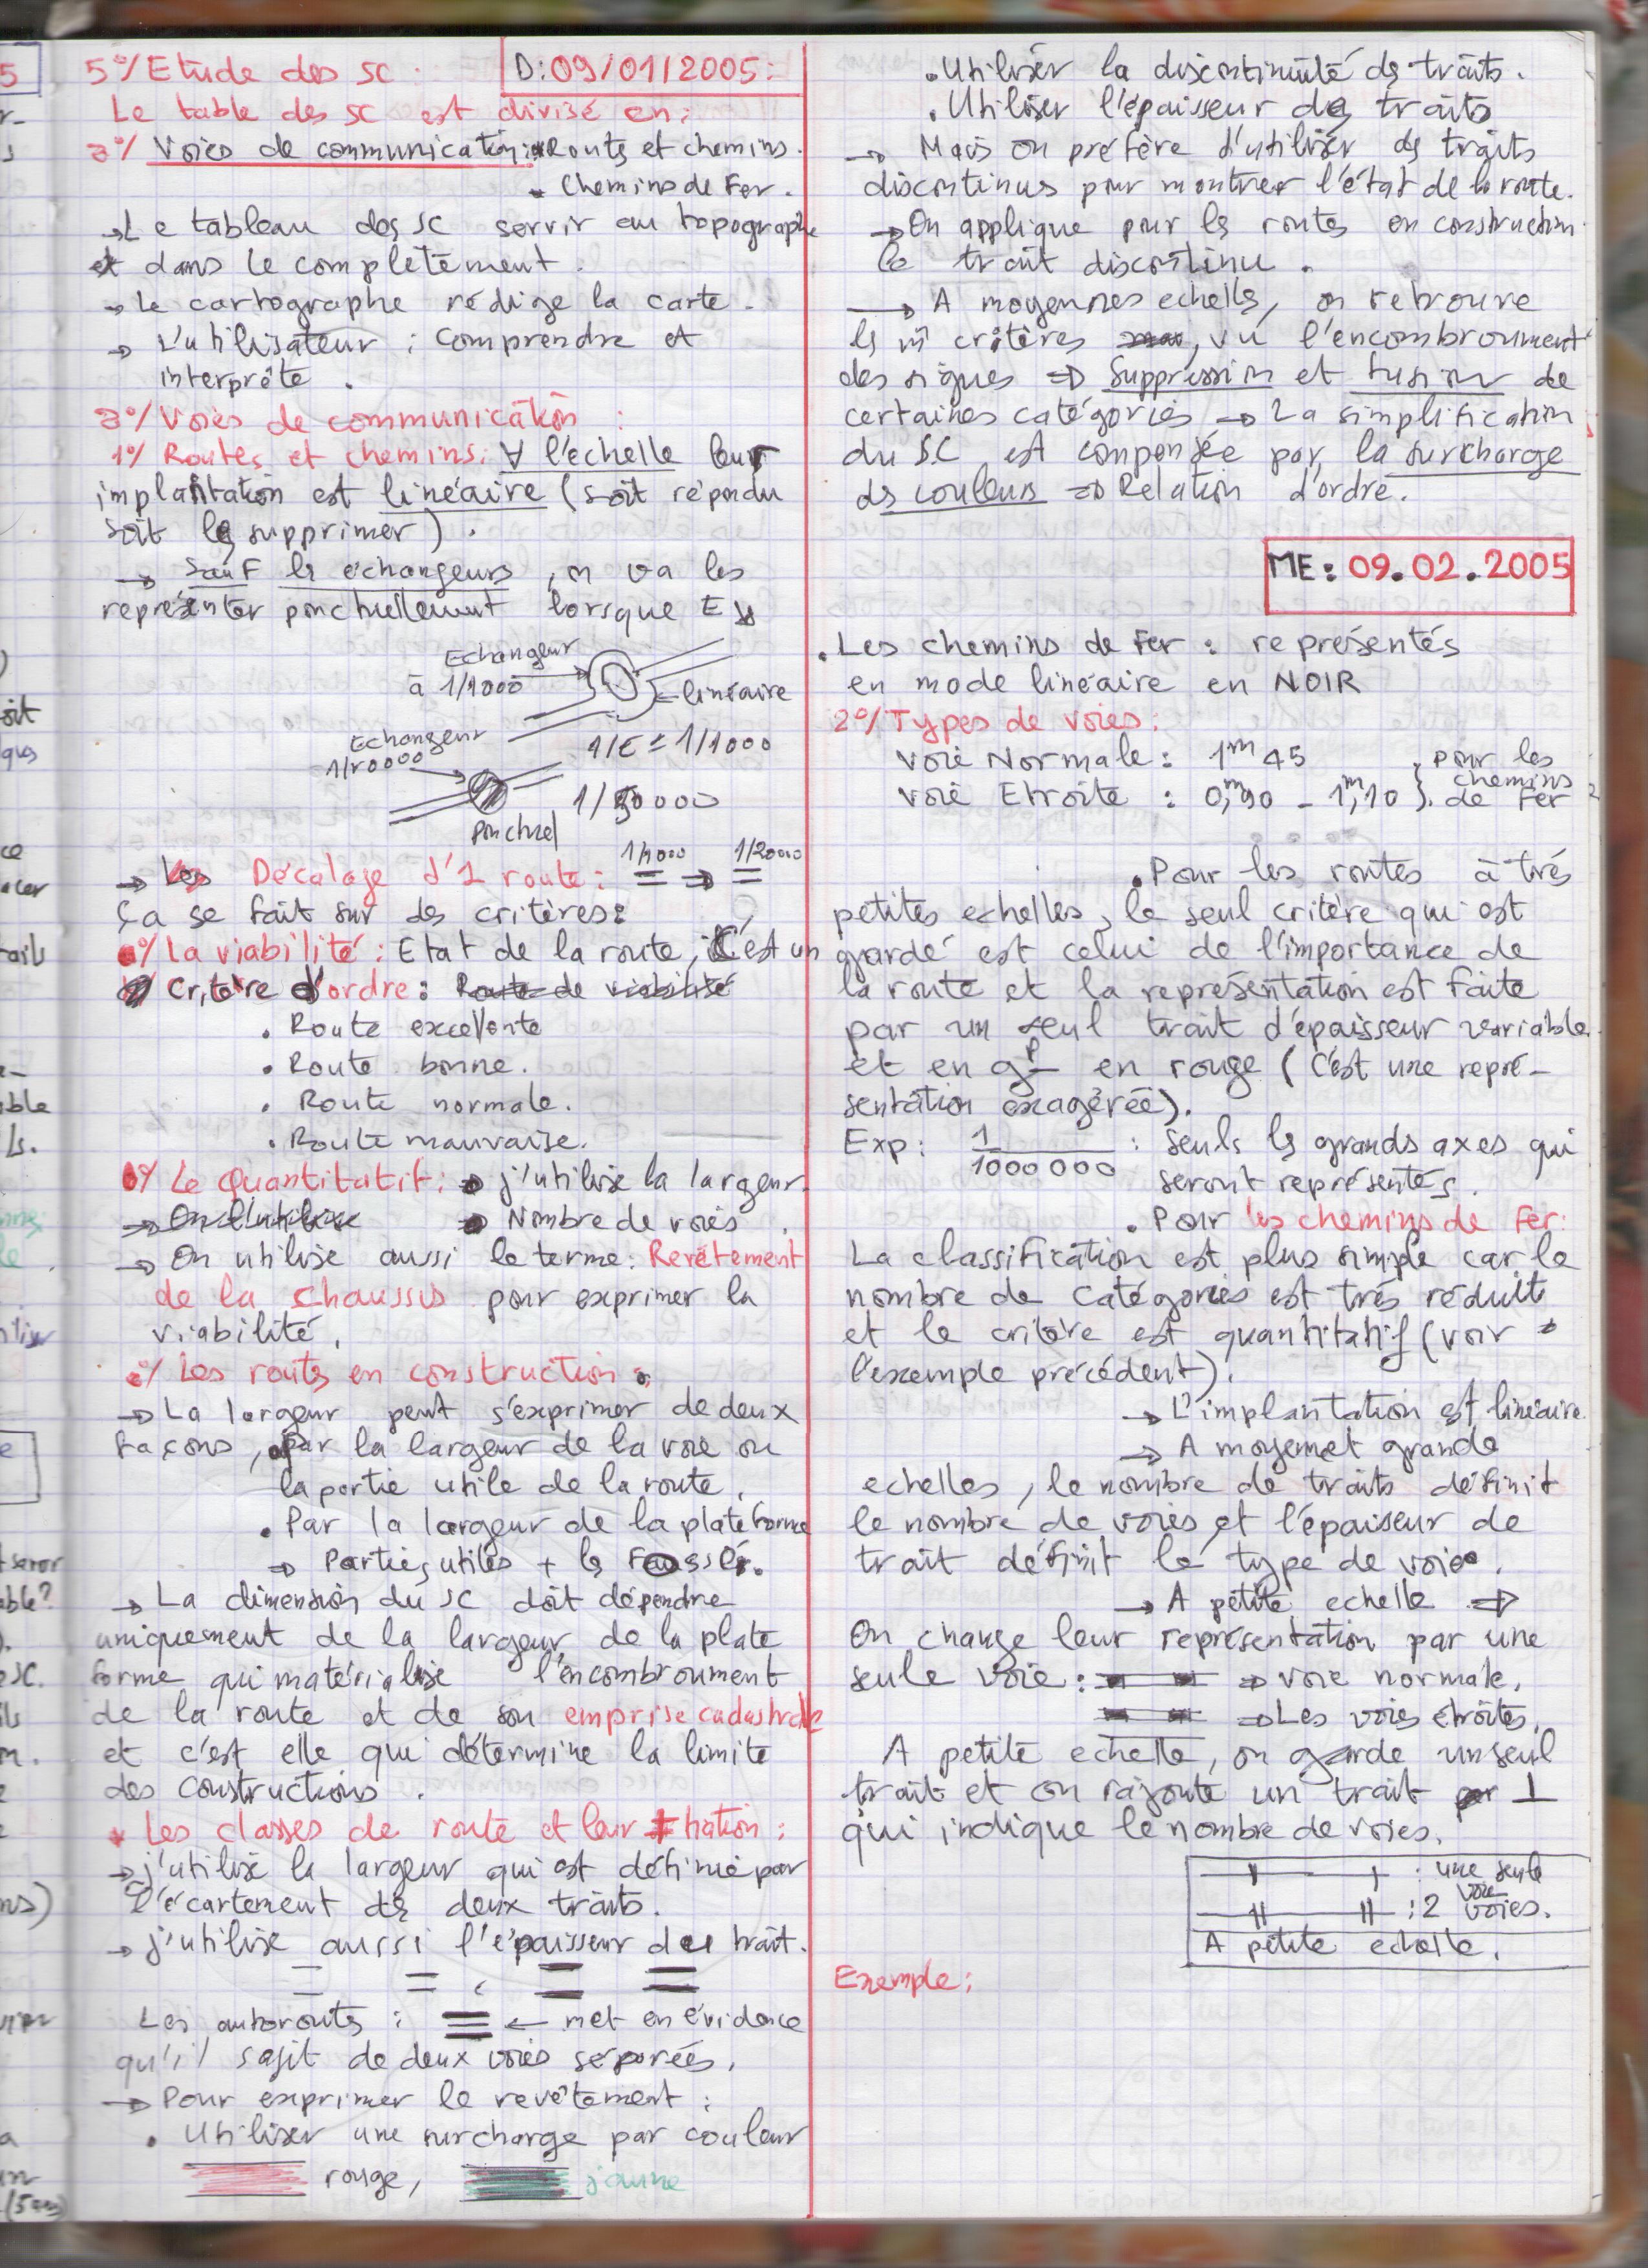 5°/ Etude des SC :
D: 09/01/2005:
Le table des SC est divisé en:
a°/ Voies de communication: * Routes et chemins.
* Chemins de Fer.
→ Le tableau des SC servir au topographe
et dans le complètement.
→ Le cartographe rédige la carte.
→ L'utilisateur : comprendre et
interprète.
a°/ Voies de communication :
1°/ Routes et chemins: ∀ l'échelle leur
implantation est linéaire (soit répondu
soit les supprimer).
→ Sauf les échangeurs, on va les
représenter ponctuellement lorsque E ↘
Echangeur
à 1/1000
← linéaire
1/E = 1/1000
Echangeur
1/50000
1/50000
ponctuel
1/1000 1/2000
→ Décalage d'1 route: = ⇒ =
ça se fait sur des critères:
a°/ La viabilité : Etat de la route, C'est un
Critère d'ordre: Route de viabilité
. Route excellente
. Route bonne.
. Route normale.
. Route mauvaise.
b°/ Le Quantitatif: → j'utilise la largeur.
→ On l'utilise → Nombre de voies.
→ On utilise aussi le terme: Revêtement
de la chaussis pour exprimer la
viabilité.
c°/ Les routes en construction :
→ La largeur peut s'exprimer de deux
façons, par la largeur de la voie ou
la partie utile de la route.
. Par la largeur de la plateforme
⇒ Parties utiles + les Fossés.
→ La dimension du SC doit dépendre
uniquement de la largeur de la plate
forme qui matérialise l'encombrement
de la route et de son emprise cadastrale
et c'est elle qui détermine la limite
des constructions.
* Les classes de route et leur ≠tiation :
→ j'utilise la largeur qui est définie par
l'écartement des deux traits.
→ j'utilise aussi l'épaisseur du trait.
Les autoroutes : ← met en évidence
qu'il sagit de deux voies séparées.
→ Pour exprimer le revêtement :
. Utiliser une surcharge par couleur
rouge, jaune
. Utiliser la discontinuité des traits.
. Utiliser l'épaisseur des traits
→ Mais on préfère d'utiliser des traits
discontinus pour montrer l'état de la route.
→ On applique pour les routes en construction
le trait discontinu.
→ A moyennes echelles, on retrouve
les m̂ critères, vu l'encombrement
des signes ⇒ suppression et fusion de
certaines catégories → La simplification
du SC est compensée par la surcharge
des couleurs ⇒ Relation d'ordre.
ME: 09.02.2005
. Les chemins de Fer : représentés
en mode linéaire en NOIR
2°/ Types de voies:
Voie Normale : 1m45
Voie Etroite : 0,m90 - 1,m10 } pour les chemins de Fer
. Pour les routes à très
petites echelles, le seul critère qui est
gardé est celui de l'importance de
la route et la représentation est faite
par un seul trait d'épaisseur variable
et en gp en rouge (C'est une repré-
sentation exagérée).
Exp: 1/1000000 : seuls les grands axes qui
seront représentés.
. Pour les chemins de Fer:
La classification est plus simple car le
nombre de catégories est très réduit
et le critère est quantitatif (voir
l'exemple précédent).
→ L'implantation est linéaire.
→ A moyen et grande
echelles, le nombre de traits définit
le nombre de voies et l'épaisseur de
trait définit le type de voie.
→ A petite echelle ⇒
On change leur représentation par une
seule voie : ⇒ voie normale.
⇒ Les voies étroites.
A petite echelle, on garde un seul
trait et on rajoute un trait ⊥
qui indique le nombre de voies.
: une seule voie
: 2 voies.
A petite echelle.
Exemple: